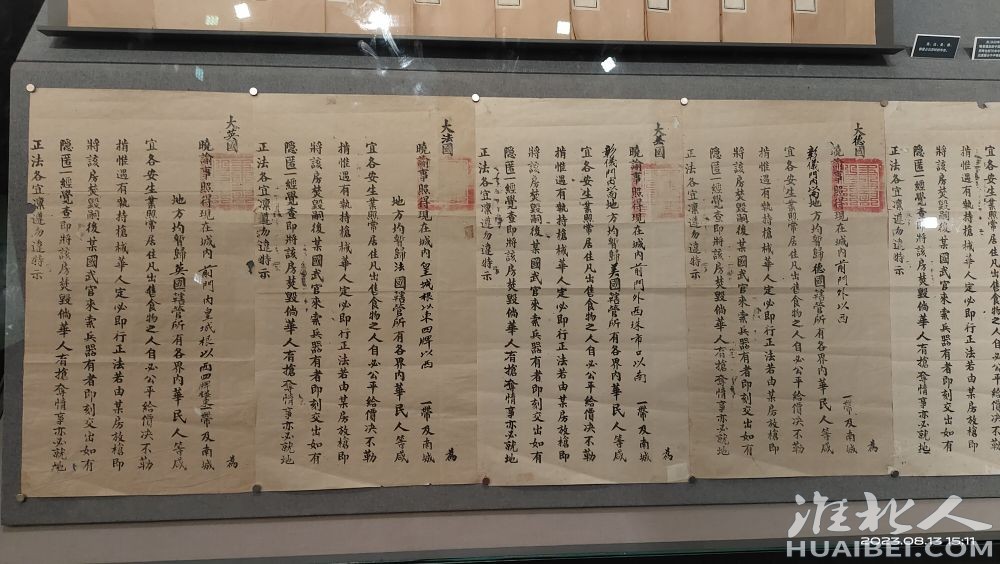 宜各安生業照常居住凡出售食物之人自必公平給價决不勒
掯惟遇有執持搶械華人定必即行正法若由某房放搶即
將該房焚毀嗣後某國武官來索兵器有者即刻交出如有
隱匿一經覺查即將該房焚毀倘華人有搶奪情事亦必就地
正法各宜凜遵勿違特示
大德國 為
曉諭事照得現在城內前門外以西 一帶及南城
彰儀門內以南地方均暫歸德國轄管所有各界內華民人等咸
宜各安生業照常居住凡出售食物之人自必公平給價决不勒
掯惟遇有執持搶械華人定必即行正法若由某房放搶即
將該房焚毀嗣後某國武官來索兵器有者即刻交出如有
隱匿一經覺查即將該房焚毀倘華人有搶奪情事亦必就地
正法各宜凜遵勿違特示
大美國 為
曉諭事照得現在城內前門外西珠市口以南 一帶及南城
彰儀門內以南地方均暫歸美國轄管所有各界內華民人等咸
宜各安生業照常居住凡出售食物之人自必公平給價决不勒
掯惟遇有執持搶械華人定必即行正法若由某房放搶即
將該房焚毀嗣後某國武官來索兵器有者即刻交出如有
隱匿一經覺查即將該房焚毀倘華人有搶奪情事亦必就地
正法各宜凜遵勿違特示
大法國 為
曉諭事照得現在城內皇城根以東四牌以西 一帶及南城
地方均暫歸法國轄管所有各界內華民人等咸
宜各安生業照常居住凡出售食物之人自必公平給價决不勒
掯惟遇有執持搶械華人定必即行正法若由某房放搶即
將該房焚毀嗣後某國武官來索兵器有者即刻交出如有
隱匿一經覺查即將該房焚毀倘華人有搶奪情事亦必就地
正法各宜凜遵勿違特示
大英國 為
曉諭事照得現在城內前門內皇城根以西四牌樓一帶及南城
地方均暫歸英國轄管所有各界內華民人等咸
宜各安生業照常居住凡出售食物之人自必公平給價决不勒
掯惟遇有執持搶械華人定必即行正法若由某房放搶即
將該房焚毀嗣後某國武官來索兵器有者即刻交出如有
隱匿一經覺查即將該房焚毀倘華人有搶奪情事亦必就地
正法各宜凜遵勿違特示
淮北人
2023.08.13 15:11
HUAIBEI.COM